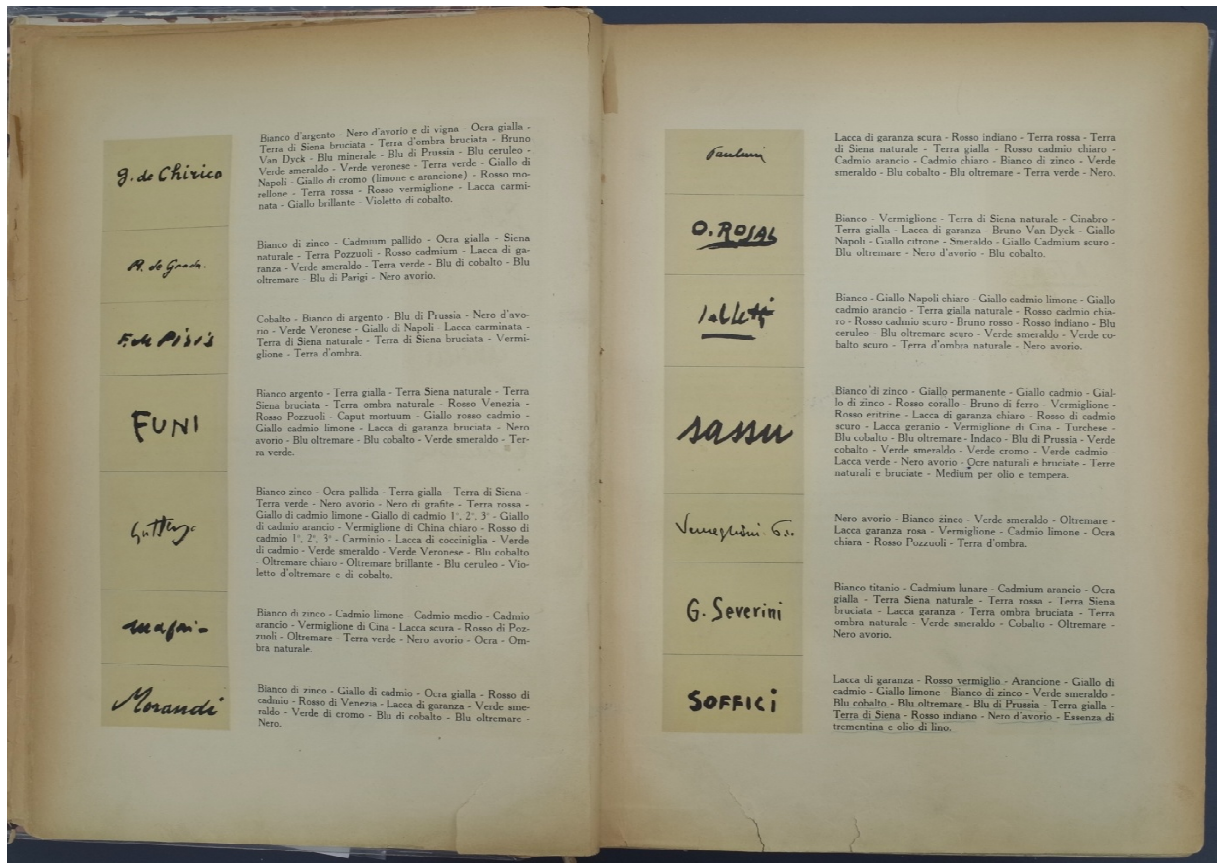 G. de Chirico
Bianco d'argento - Nero d'avorio e di vigna - Ocra gialla -
Terra di Siena bruciata - Terra d'ombra bruciata - Bruno
Van Dyck - Blu minerale - Blu di Prussia - Blu ceruleo -
Verde smeraldo - Verde veronese - Terra verde - Giallo di
Napoli - Giallo di cromo (limone e arancione) - Rosso mo-
rellone - Terra rossa - Rosso vermiglione - Lacca carmi-
nata - Giallo brillante - Violetto di cobalto.
Bianco di zinco - Cadmium pallido - Ocra gialla - Siena
naturale - Terra Pozzuoli - Rosso cadmium - Lacca di ga-
ranza - Verde smeraldo - Terra verde - Blu di cobalto - Blu
oltremare - Blu di Parigi - Nero avorio.
F. de Pisis
Cobalto - Bianco di argento - Blu di Prussia - Nero d'avo-
rio - Verde Veronese - Giallo di Napoli - Lacca carminata -
Terra di Siena naturale - Terra di Siena bruciata - Vermi-
glione - Terra d'ombra.
FUNI
Bianco argento - Terra gialla - Terra Siena naturale - Terra
Siena bruciata - Terra ombra naturale - Rosso Venezia -
Rosso Pozzuoli - Caput mortuum - Giallo rosso cadmio -
Giallo cadmio limone - Lacca di garanza bruciata - Nero
avorio - Blu oltremare - Blu cobalto - Verde smeraldo - Ter-
ra verde.
Guttuso
Bianco zinco - Ocra pallida - Terra gialla - Terra di Siena -
Terra verde - Nero avorio - Nero di grafite - Terra rossa -
Giallo di cadmio limone - Giallo di cadmio 1°, 2°, 3° - Giallo
di cadmio arancio - Vermiglione di China chiaro - Rosso di
cadmio 1°, 2°, 3° - Carminio - Lacca di cocciniglia - Verde
di cadmio - Verde smeraldo - Verde Veronese - Blu cobalto
- Oltremare chiaro - Oltremare brillante - Blu ceruleo - Vio-
letto d'oltremare e di cobalto.
Mafai
Bianco di zinco - Cadmio limone - Cadmio medio - Cadmio
arancio - Vermiglione di Cina - Lacca scura - Rosso di Poz-
zuoli - Oltremare - Terra verde - Nero avorio - Ocra - Om-
bra naturale.
Morandi
Bianco di zinco - Giallo di cadmio - Ocra gialla - Rosso di
cadmio - Rosso di Venezia - Lacca di garanza - Verde sme-
raldo - Verde di cromo - Blu di cobalto - Blu oltremare -
Nero.
Lacca di garanza scura - Rosso indiano - Terra rossa - Terra
di Siena naturale - Terra gialla - Rosso cadmio chiaro -
Cadmio arancio - Cadmio chiaro - Bianco di zinco - Verde
smeraldo - Blu cobalto - Blu oltremare - Terra verde - Nero.
O. ROSAI
Bianco - Vermiglione - Terra di Siena naturale - Cinabro -
Terra gialla - Lacca di garanza - Bruno Van Dyck - Giallo
Napoli - Giallo citrone - Smeraldo - Giallo Cadmium scuro -
Blu oltremare - Nero d'avorio - Blu cobalto.
Bianco - Giallo Napoli chiaro - Giallo cadmio limone - Giallo
cadmio arancio - Terra gialla naturale - Rosso cadmio chia-
ro - Rosso cadmio scuro - Bruno rosso - Rosso indiano - Blu
ceruleo - Blu oltremare scuro - Verde smeraldo - Verde co-
balto scuro - Terra d'ombra naturale - Nero avorio.
sassu
Bianco di zinco - Giallo permanente - Giallo cadmio - Gial-
lo di zinco - Rosso corallo - Bruno di ferro - Vermiglione -
Rosso eritrine - Lacca di garanza chiaro - Rosso di cadmio
scuro - Lacca geranio - Vermiglione di Cina - Turchese -
Blu cobalto - Blu oltremare - Indaco - Blu di Prussia - Verde
cobalto - Verde smeraldo - Verde cromo - Verde cadmio -
Lacca verde - Nero avorio - Ocre naturali e bruciate - Terre
naturali e bruciate - Medium per olio e tempera.
Nero avorio - Bianco zinco - Verde smeraldo - Oltremare -
Lacca garanza rosa - Vermiglione - Cadmio limone - Ocra
chiara - Rosso Pozzuoli - Terra d'ombra.
G. Severini
Bianco titanio - Cadmium lunare - Cadmium arancio - Ocra
gialla - Terra Siena naturale - Terra rossa - Terra Siena
bruciata - Lacca garanza - Terra ombra bruciata - Terra
ombra naturale - Verde smeraldo - Cobalto - Oltremare -
Nero avorio.
SOFFICI
Lacca di garanza - Rosso vermiglio - Arancione - Giallo di
cadmio - Giallo limone - Bianco di zinco - Verde smeraldo -
Blu cobalto - Blu oltremare - Blu di Prussia - Terra gialla -
Terra di Siena - Rosso indiano - Nero d'avorio - Essenza di
trementina e olio di lino.